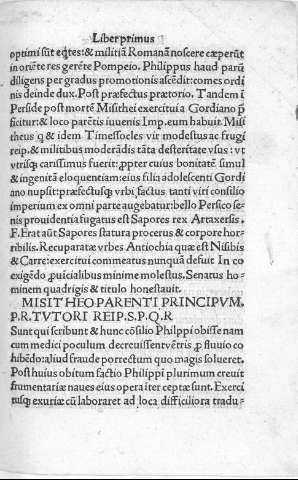 Liber primus
optimi sūt eq̄tes: & militiā Romanā noscere cæperūt
in oriēte res gerēte Pompeio. Philippus haud parū
diligens per gradus promotionis ascēdit: comes ordi
nis deinde dux. Post præfectus prætorio. Tandem ī
Perside post mortē Misithei exercitui a Gordiano p̄
ficitur: & loco parētis iuuenis Imp. eum habuit. Misi
theus q & idem Timesſocles vir modestus ac frugi
reip. & militibus moderādis tāta desteritate vsus: vt
vtrisq; carissimus fuerit: ꝓpter cuius bonitatē simul
& ingenitā eloquentiam: eius filia adolescenti Gordi
ano nupsit: præfectusq; vrbi factus tanti viri consilio
imperium ex omni parte augebatur: bello Persico se-
nis prouidentia fugatus est Sapores rex Artaxersis.
F. Erat aūt Sapores statura procerus & corpore hor-
ribilis. Recuparatæ vrbes Antiochia quæ est Nisibis
& Carre: exercitui commeatus nunquā defuit In co
exigēdo ꝓuīcialibus minime molestus. Senatus ho-
minem quadrigis & titulo honestauit.
MISITHEO PARENTI PRINCIPVM.
P.R. TVTORI REIP. S.P.Q.R
Sunt qui scribunt & hunc cōsilio Philppi obisse nam
cum medici poculum decreuissent vētris ꝓ fluuio co
hibēdo: aliud fraude porrectum quo magis solueret.
Post huius obitum factio Philippi plurimum creuit
frumentariæ naues eius opera iter ceptæ sunt. Exerci
tusq; exuriæ cū laboraret ad loca difficiliora tradu-